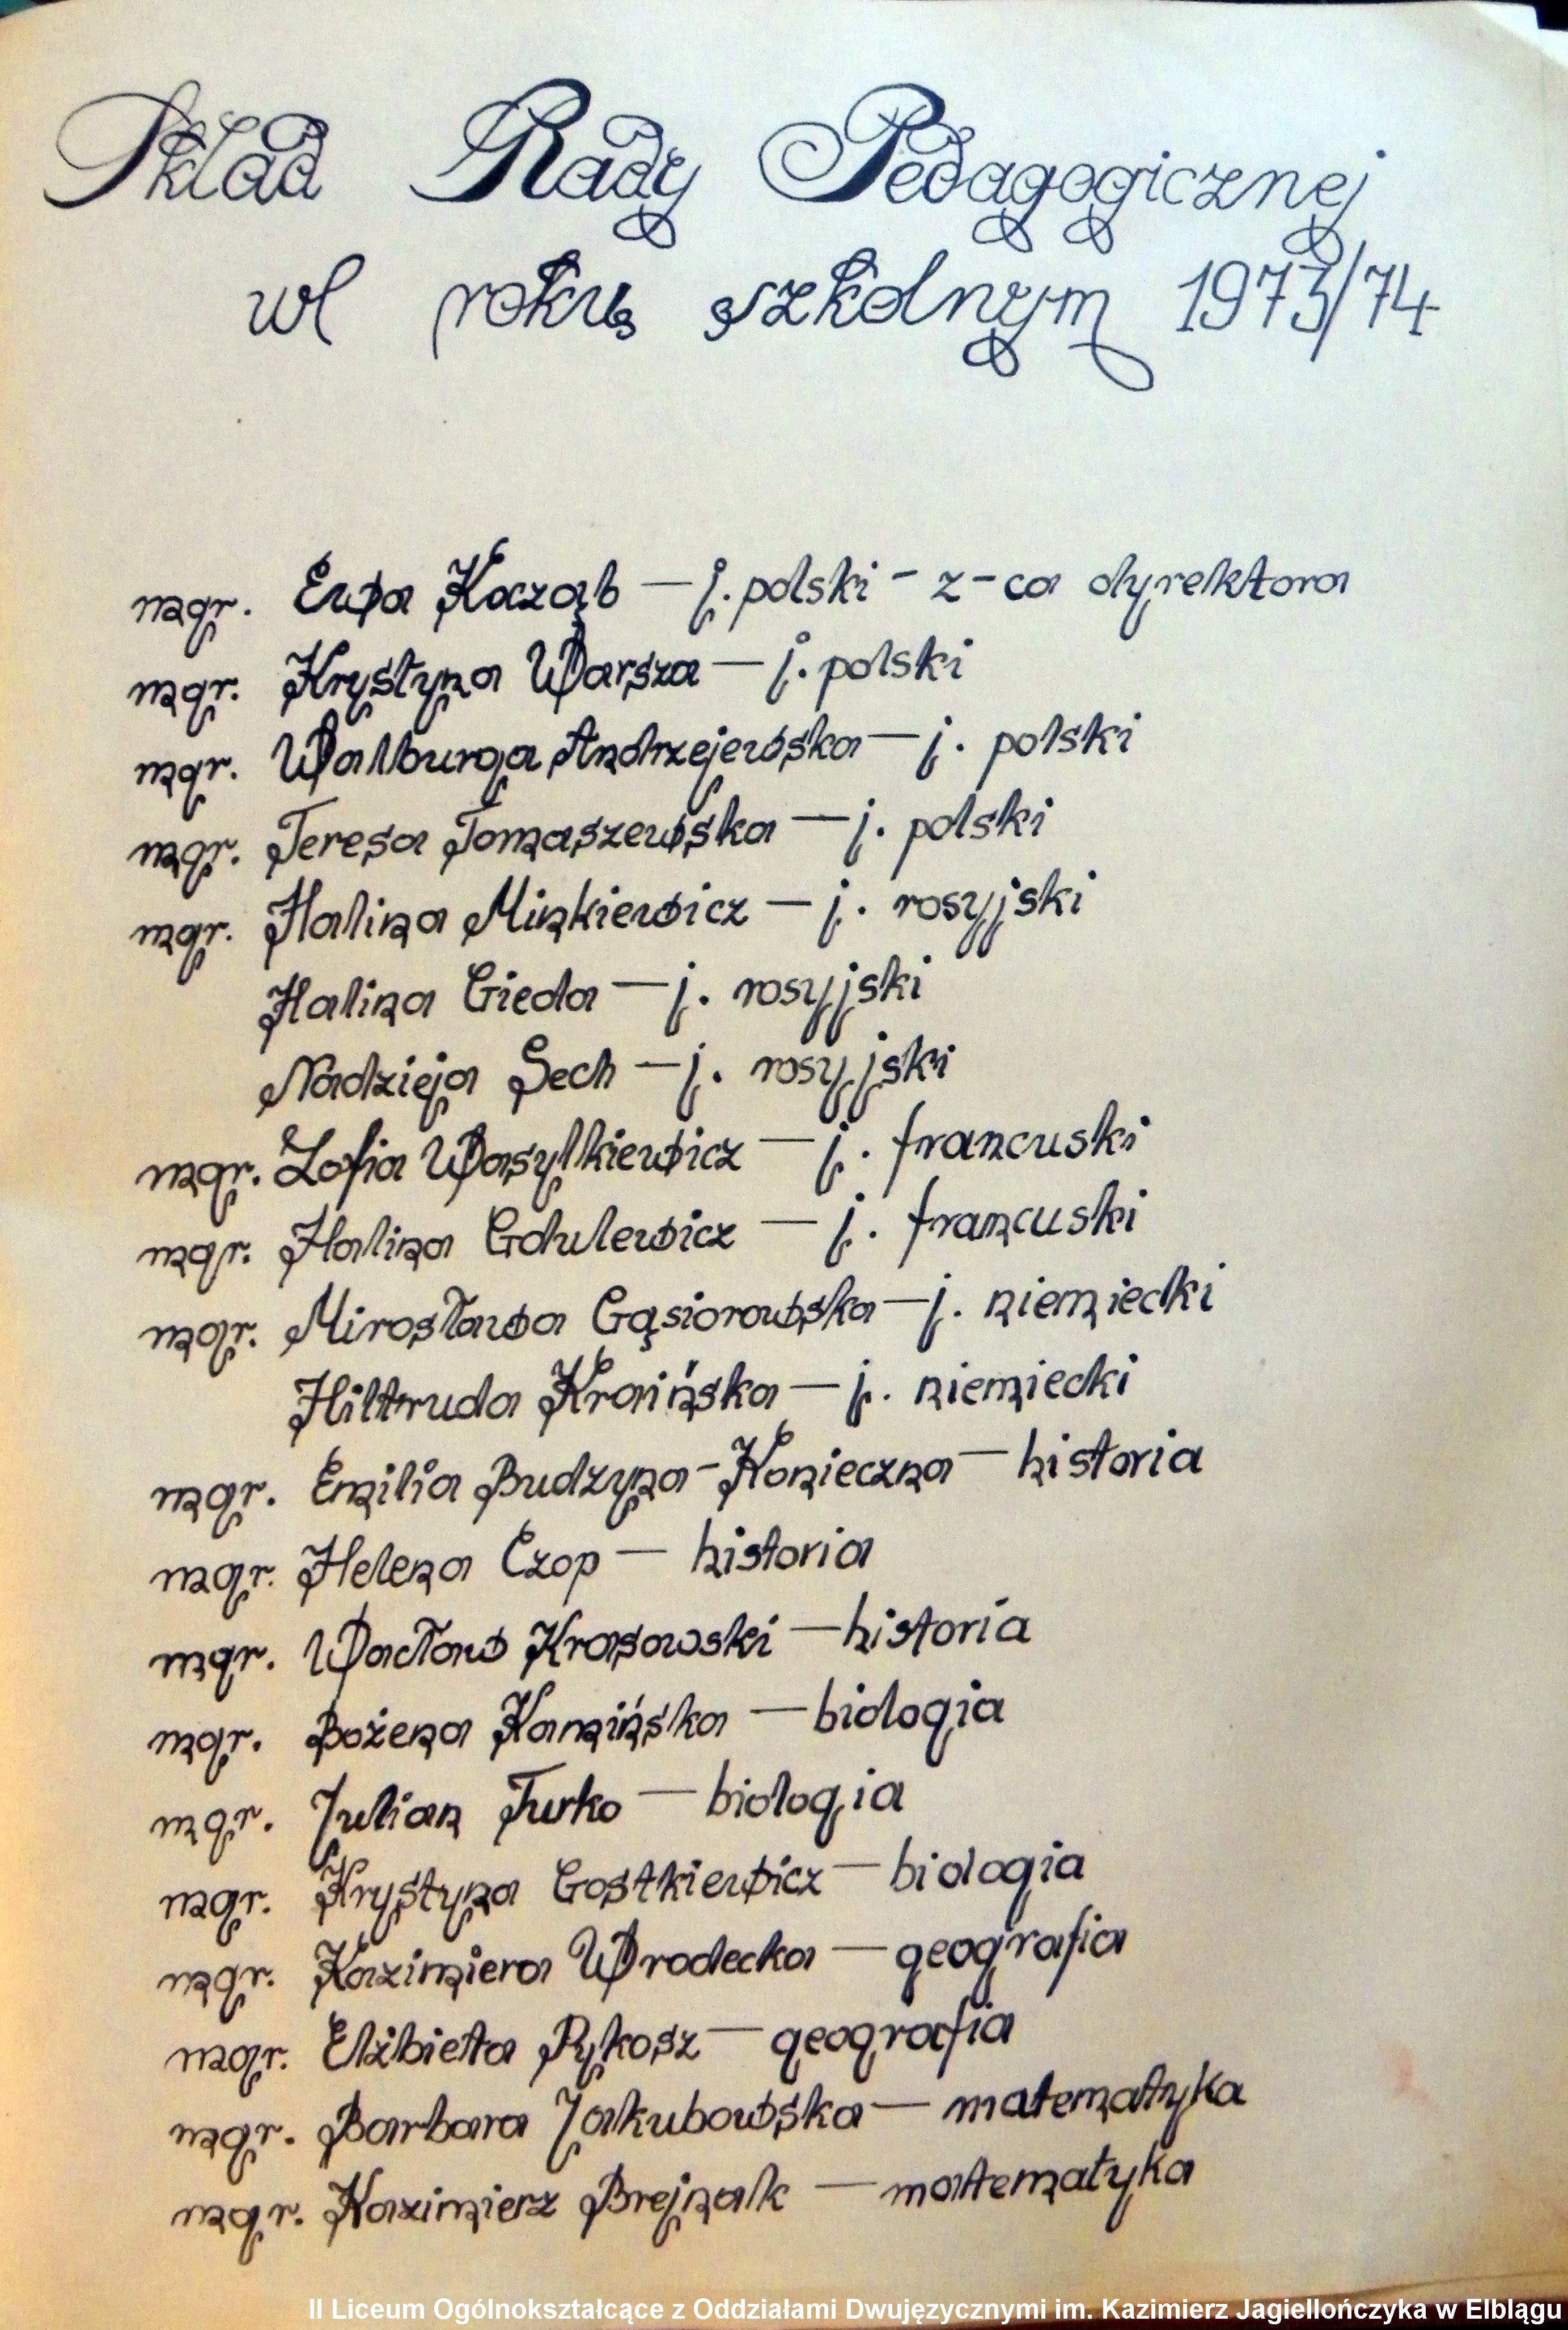 Skład Rady Pedagogicznej
w roku szkolnym 1973/74
mgr. Ewa Kacząb — j. polski - z-ca dyrektora
mgr. Krystyna Warsza — j. polski
mgr. Walburga Andrzejewska — j. polski
mgr. Teresa Tomaszewska — j. polski
mgr. Halina Minkiewicz — j. rosyjski
Halina Gieda — j. rosyjski
Nadzieja Sech — j. rosyjski
mgr. Zofia Wasylkiewicz — j. francuski
mgr. Halina Gdulewicz — j. francuski
mgr. Mirosława Gąsiorowska — j. niemiecki
Hiltruda Kraińska — j. niemiecki
mgr. Emilia Budzyna-Konieczna — historia
mgr. Helena Czop — historia
mgr. Wacław Krasowski — historia
mgr. Bożena Kamińska — biologia
mgr. Julian Turko — biologia
mgr. Krystyna Gostkiewicz — biologia
mgr. Kazimiera Wrodecka — geografia
mgr. Elżbieta Pykosz — geografia
mgr. Barbara Jakubowska — matematyka
mgr. Kazimierz Brejnak — matematyka
II Liceum Ogólnokształcące z Oddziałami Dwujęzycznymi im. Kazimierz Jagiellończyka w Elblągu